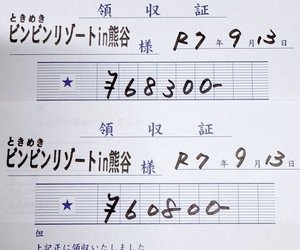 領収証
ときめき
ピンピンリゾートin熊谷 様 R7年9月13日
★ ¥68300-
領収証
ときめき
ピンピンリゾートin熊谷 様 R7年9月13日
★ ¥60800-
但
上記正に領収いたしました